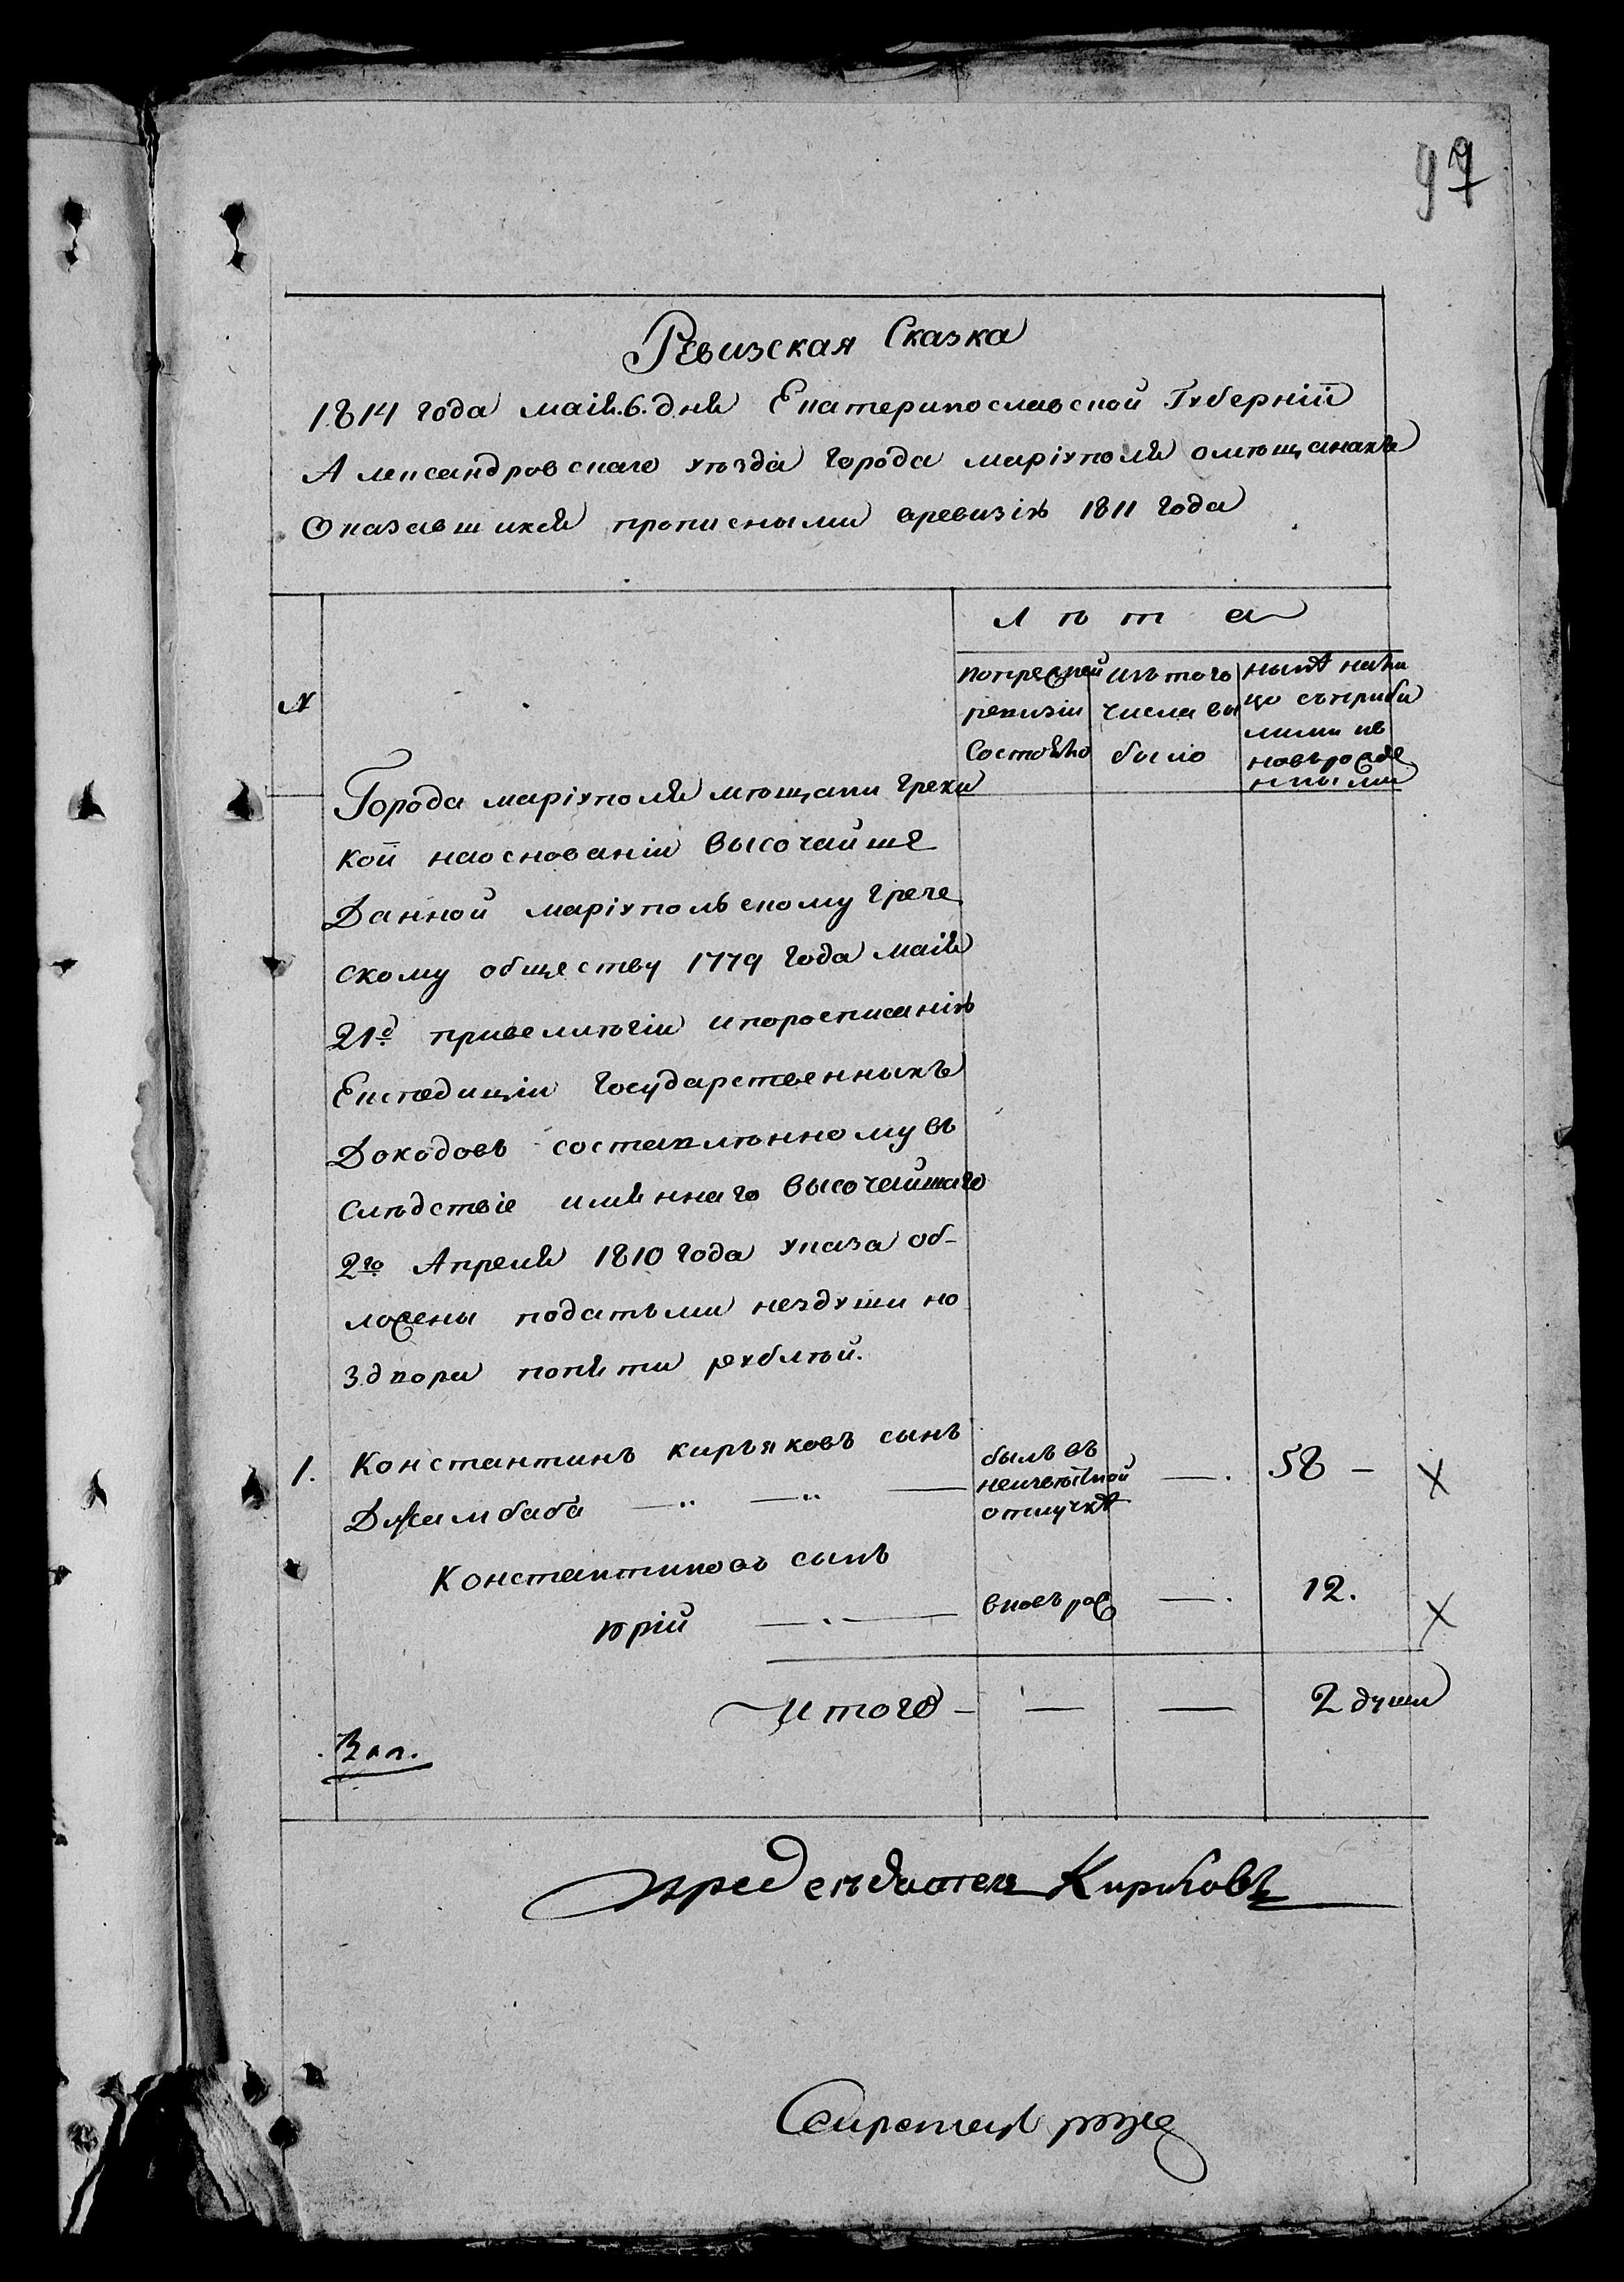 97
Ревизская Сказка
1814 года маія.6. дня Екатеринославской Губерніи
Александровскаго уѣзда города маріуполя омѣщанахъ
Оказавшихся прописными вревизію 1811 года
№
Л ѣ т а
попрежней ревизіи Состояло
изъ того числа вы было
нынѣ нали цо съприбы лыми ив новърожде нными
Города маріуполя мѣщани греки
кои наоснованіи высочайше
Данной маріупольскому грече
скому обществу 1779 года маія
21д привелѣгіи ипоросписанію
Експедиціи Государственныхъ
Доходовъ составлѣнному въ
слѣдствіе имяннаго высочайшаго
2го Апреля 1810 года указа об-
ложены податьми нездуши но
здвора попяти рублѣй.
1. Константинъ кирьяковъ сынъ
Джамбаба — — — былъ въ неизвѣстной отлучкѣ —. 58 – х
Константиновъ сынъ
юрій — вновъ рож —. 12. х
Итого – — — 2 души
предсѣдатель Кирьяковъ